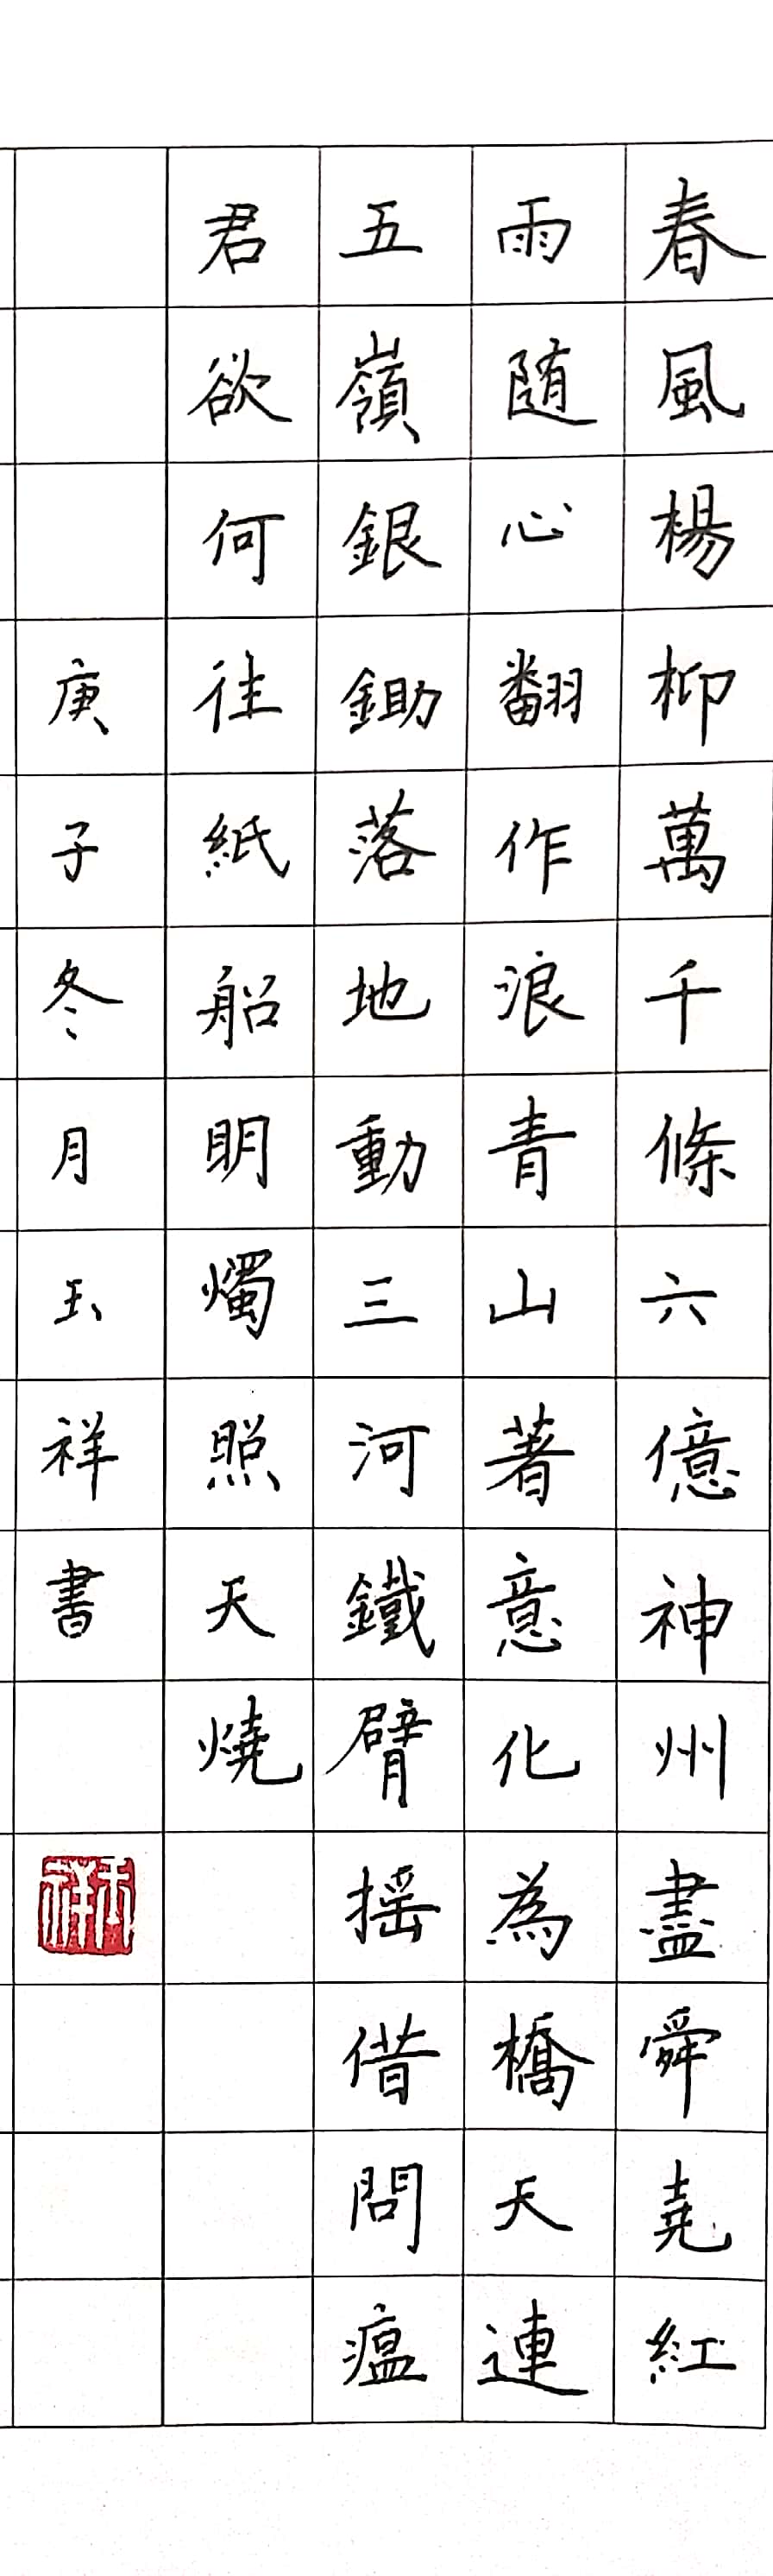 春風楊柳萬千條六億神州盡舜堯紅
雨随心翻作浪青山著意化為橋天連
五嶺銀鋤落地動三河鐵臂摇借問瘟
君欲何往紙船明燭照天燒
庚子冬月玉祥書
玉祥